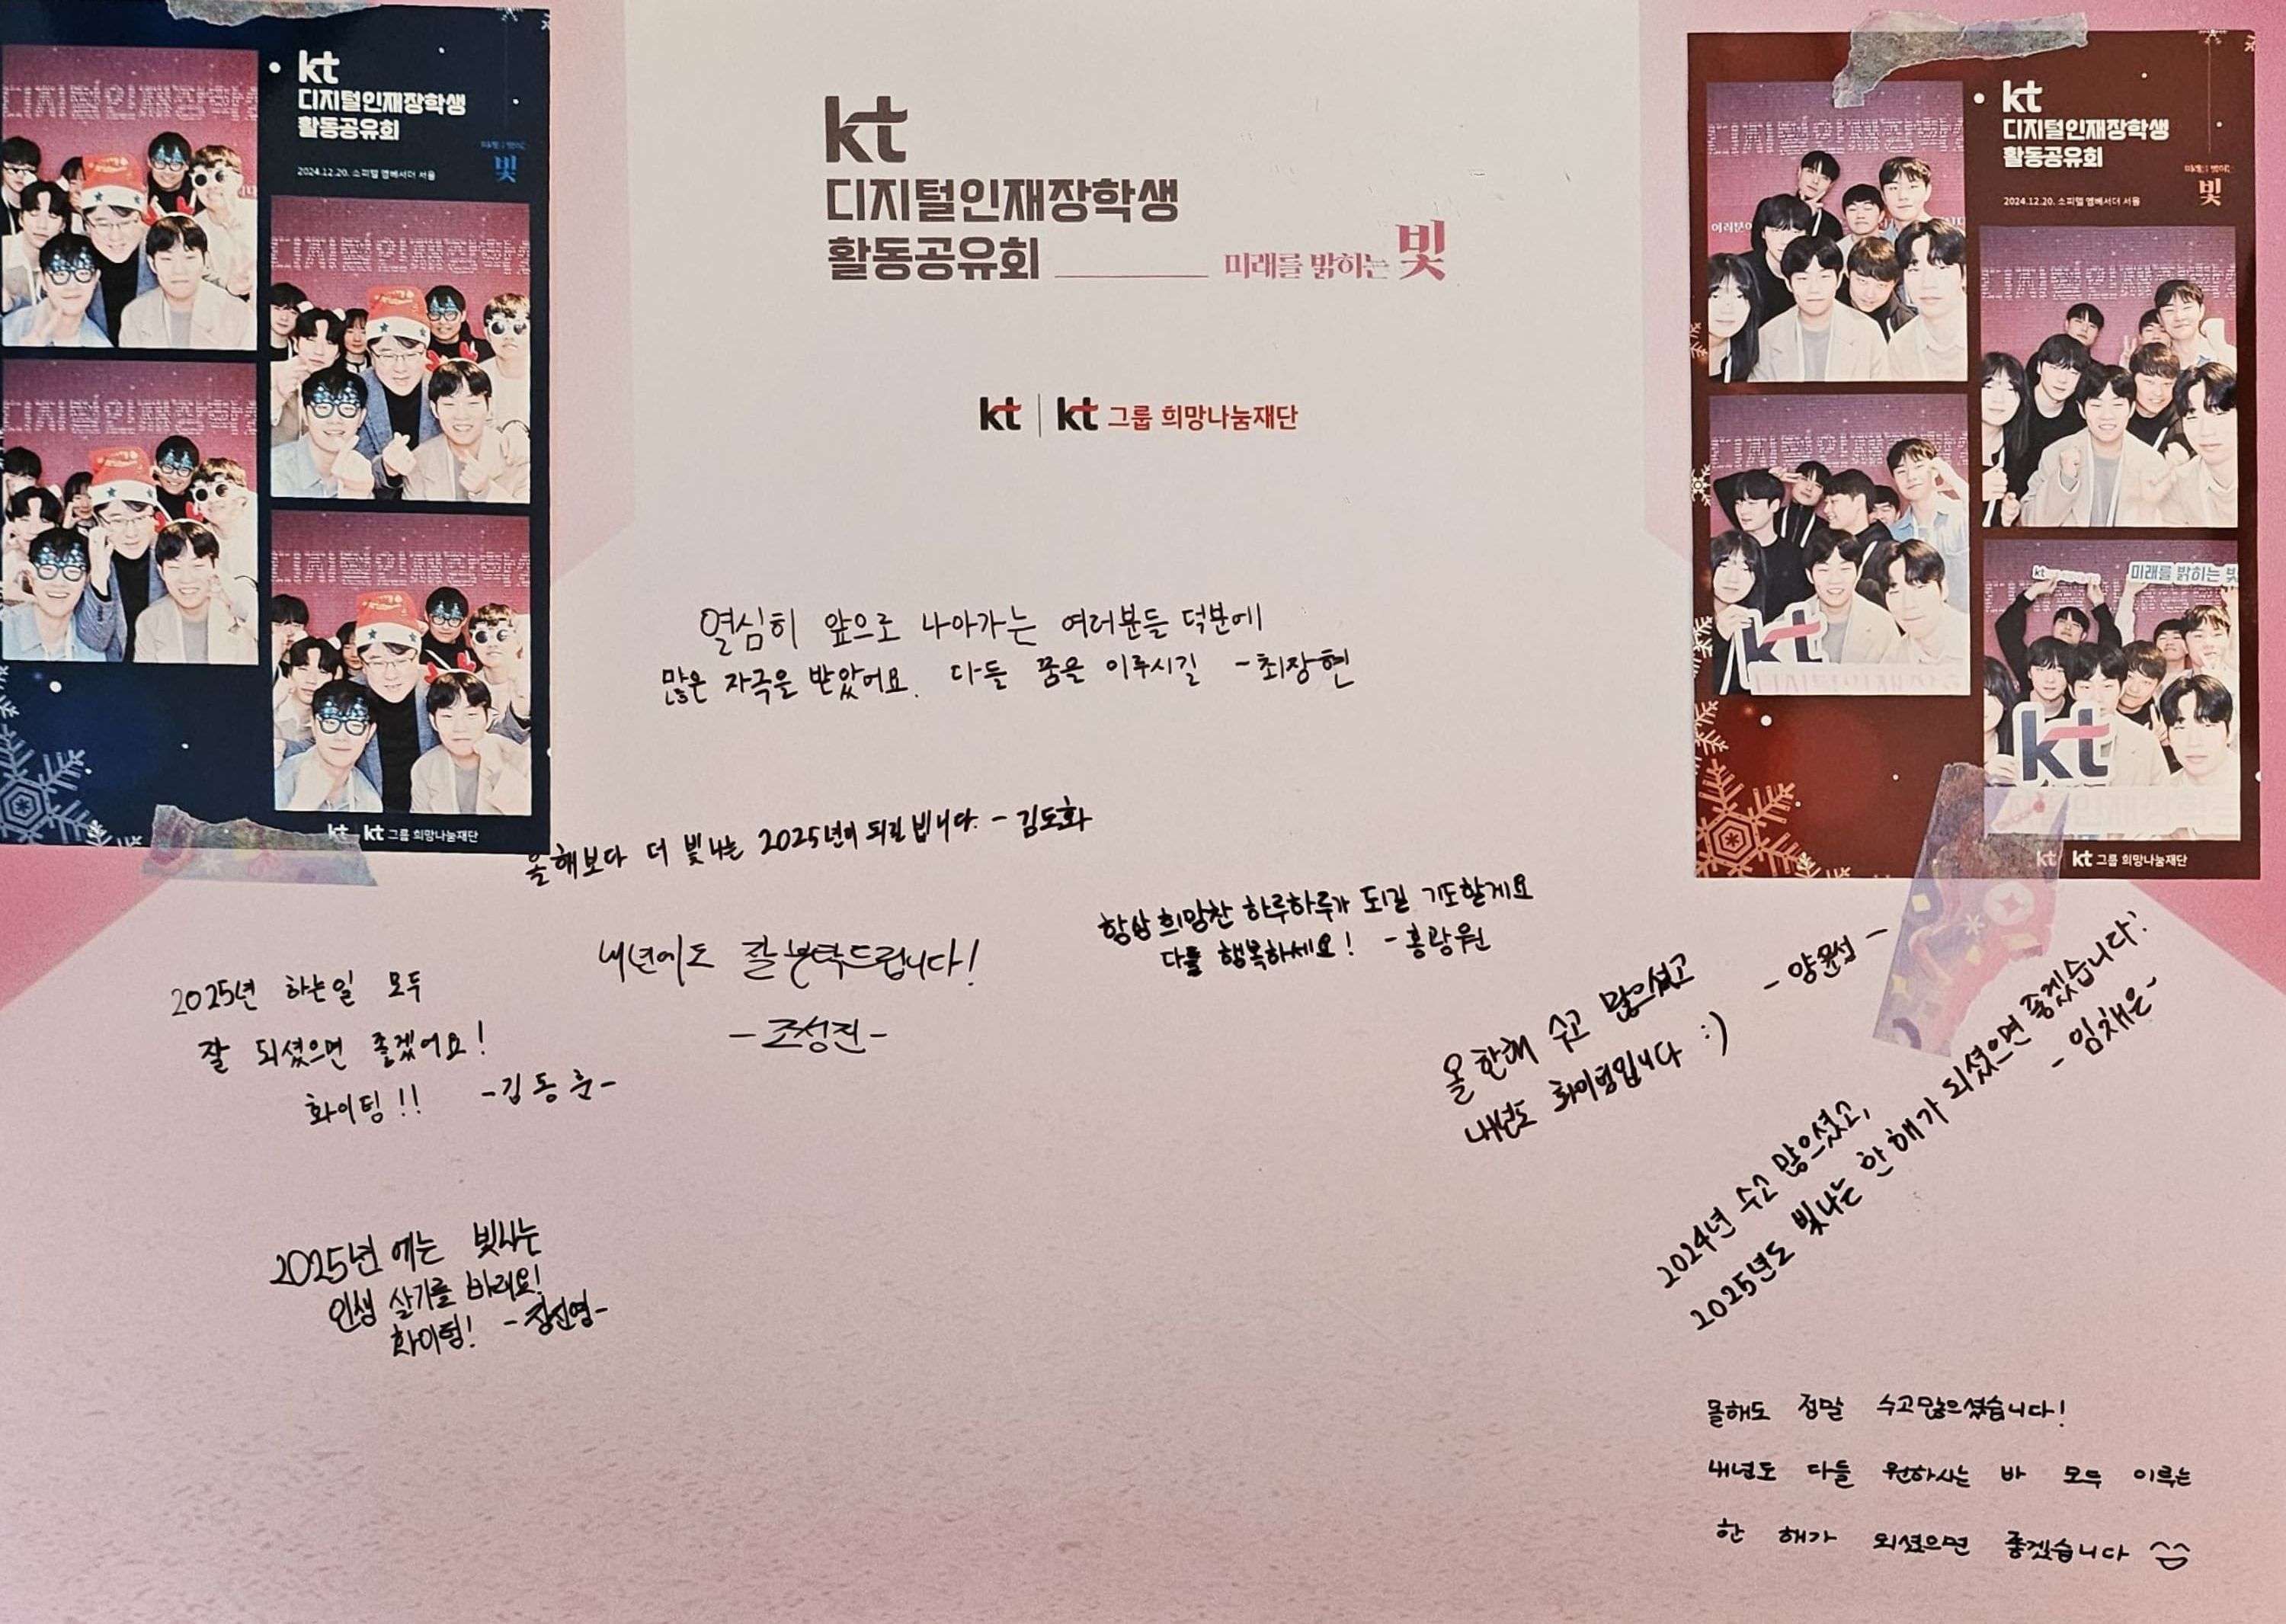 kt
디지털인재장학생
활동공유회
2024.12.20. 소피텔 앰배서더 서울
빛
kt kt 그룹 희망나눔재단
kt
디지털인재장학생
활동공유회 미래를 밝히는 빛
kt | kt 그룹 희망나눔재단
kt
디지털인재장학생
활동공유회
2024.12.20. 소피텔 앰배서더 서울
빛
미래를 밝히는 빛
kt
kt
kt kt 그룹 희망나눔재단
열심히 앞으로 나아가는 여러분들 덕분에
많은 자극을 받았어요. 다들 꿈을 이루시길 -최장현
올해보다 더 빛나는 2025년이 되길 빕니다. - 김도화
항상 희망찬 하루하루가 되길 기도할게요
다들 행복하세요! - 홍광원
내년에도 잘 부탁드립니다!
- 조성진 -
2025년 하는일 모두
잘 되셨으면 좋겠어요!
화이팅!! -김동훈-
올 한해 수고 많으셨고
내년도 화이팅입니다 :)
- 양윤섭 -
2024년 수고 많으셨고,
2025년도 빛나는 한 해가 되셨으면 좋겠습니다!
- 임채은-
2025년에는 빛나는
인생 살기를 바래요!
화이팅!
올해도 정말 수고많으셨습니다!
내년도 다들 원하시는 바 모두 이루는
한 해가 되셨으면 좋겠습니다